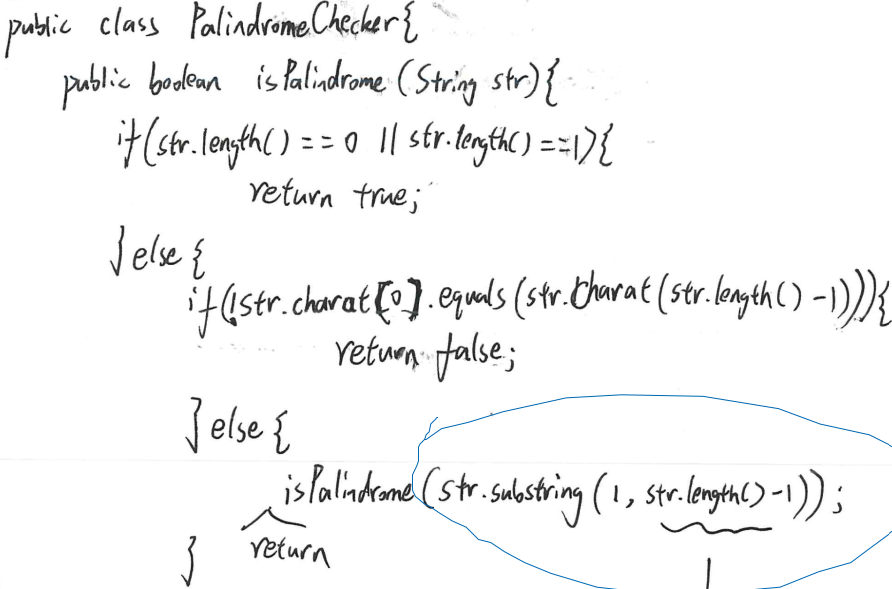 public class PalindromeChecker{
public boolean isPalindrome (String str){
if(str.length() == 0 || str.length() ==1){
return true;
}else{
if(!str.charat[0].equals(str.charat(str.length() -1))){
return false;
}else{
isPalindrome(str.substring(1, str.length()-1));
return
}